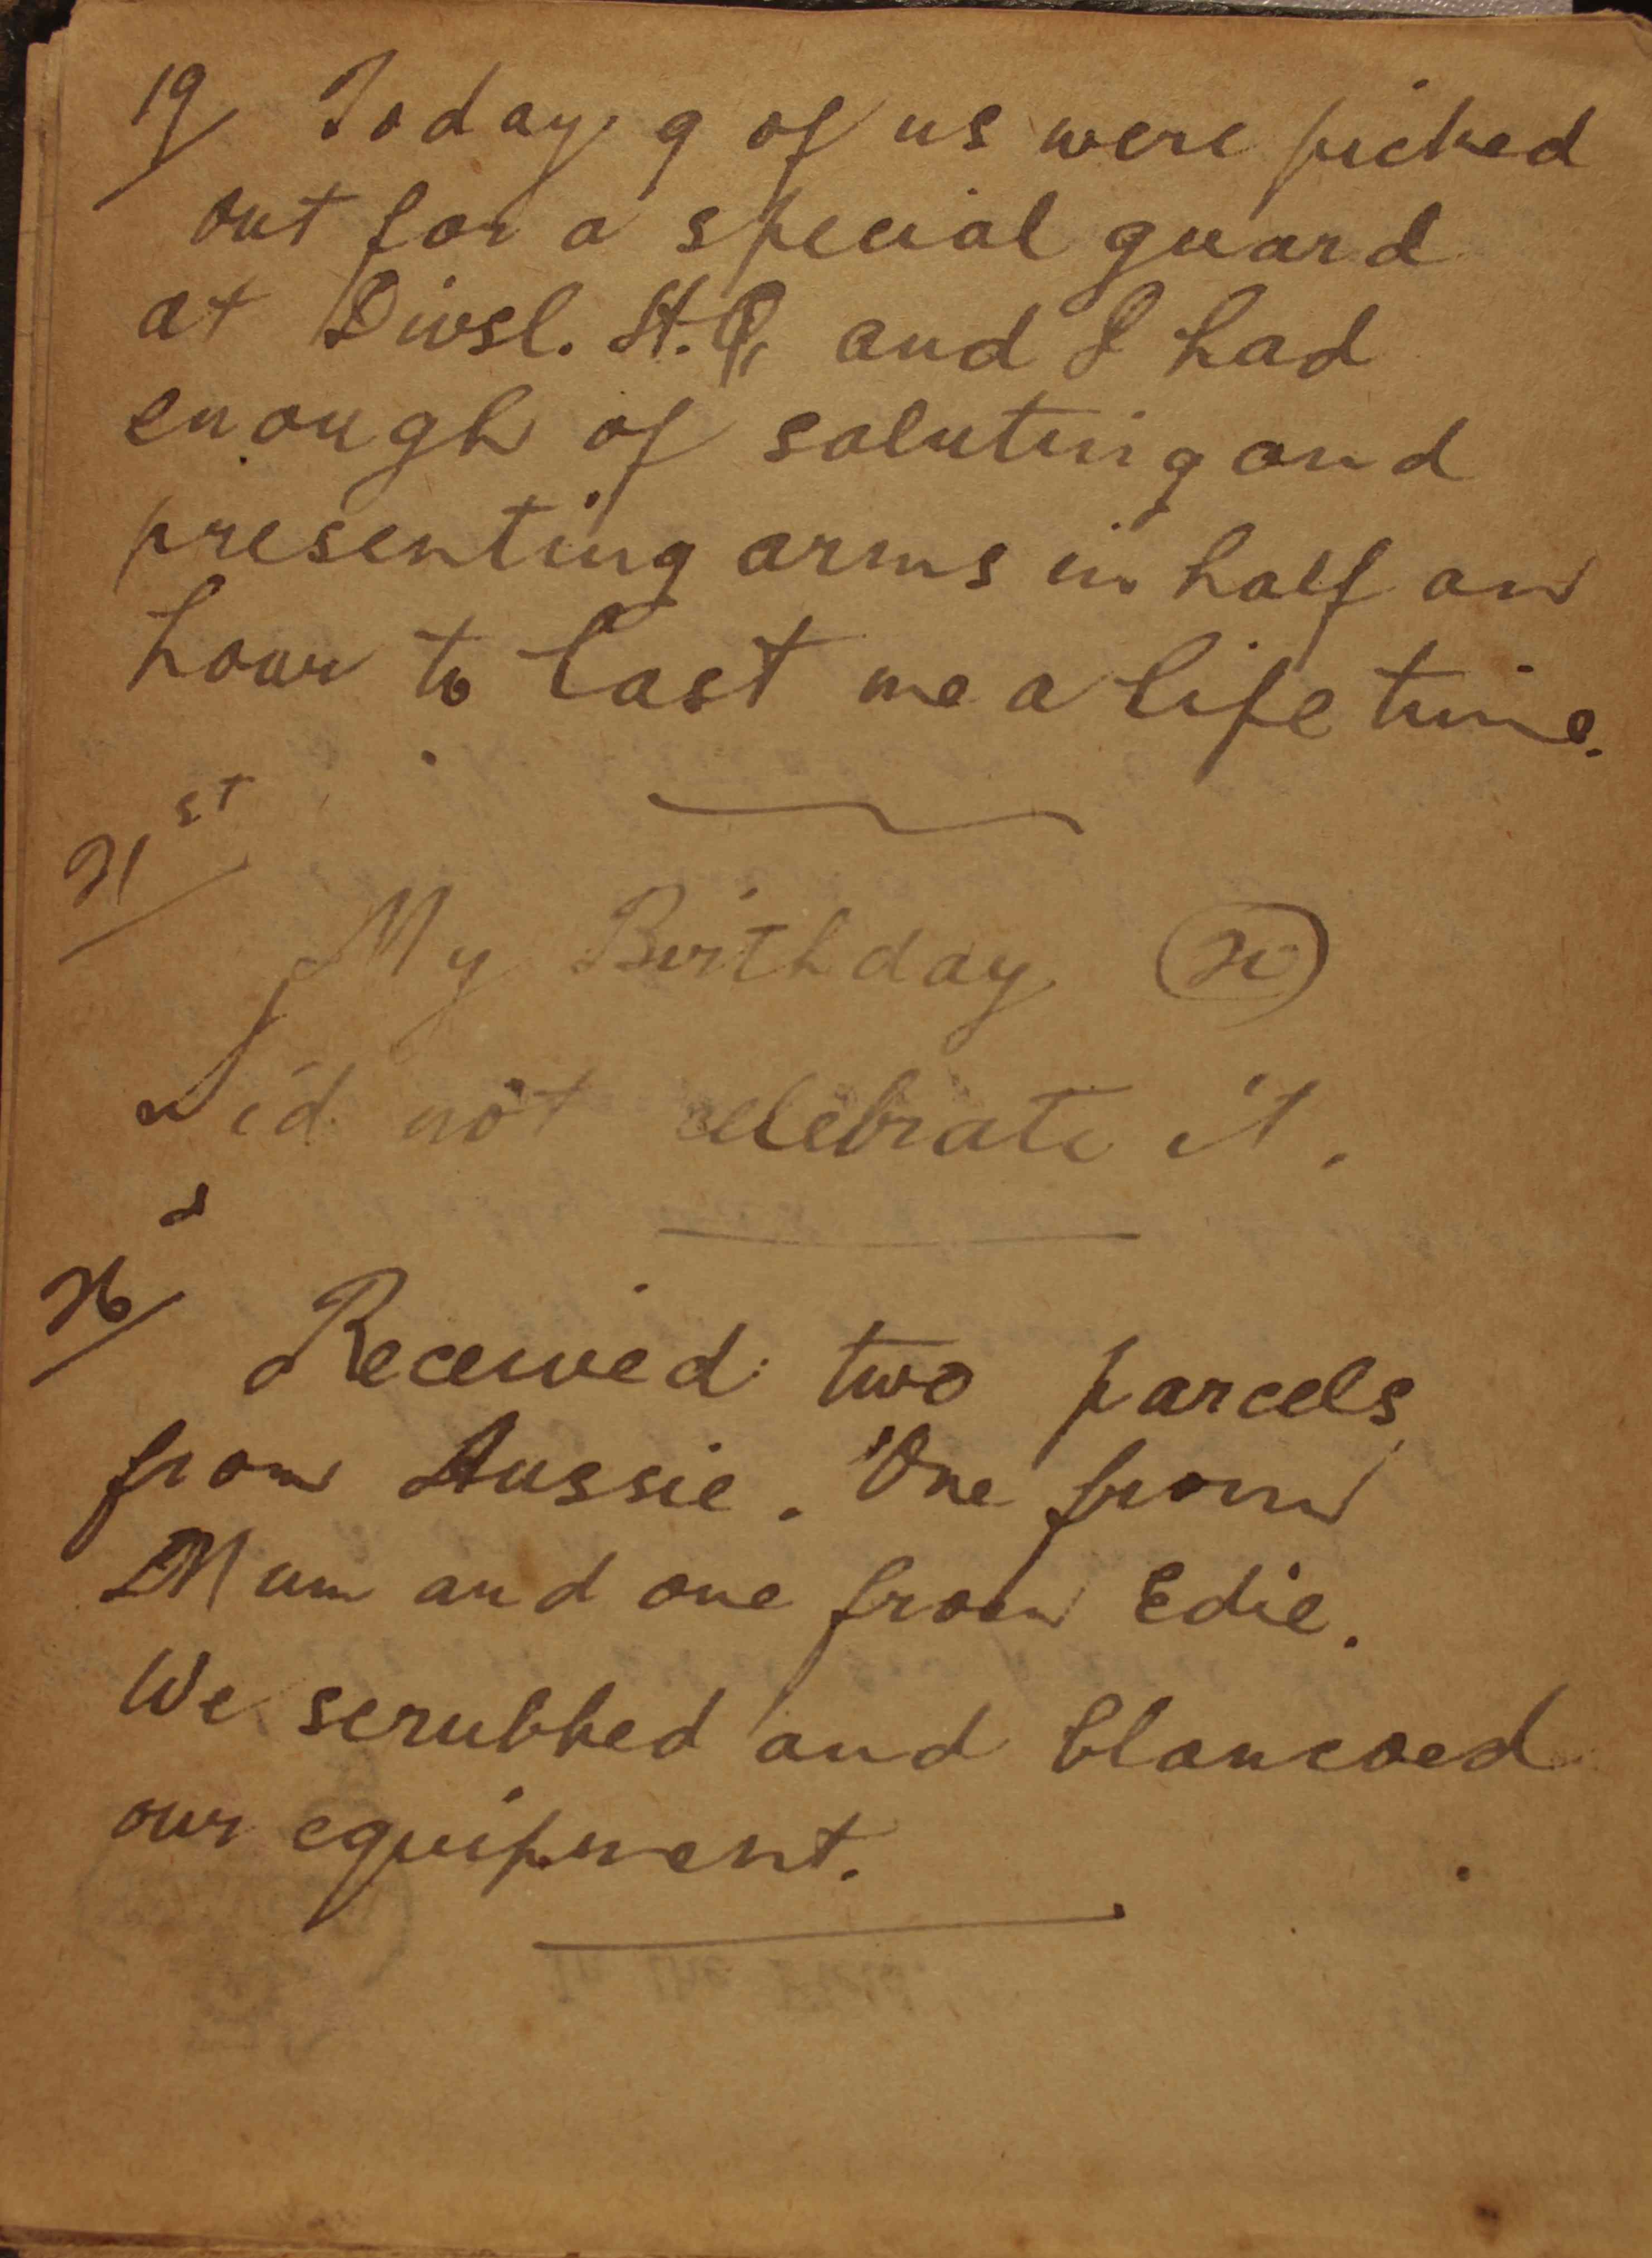 19/ Today 9 of us were picked
out for a special guard
at Divsl. H.Q, and I had
enough of saluting and
presenting arms in half an
hour to last me a life time.
21st
My Birthday
Did not celebrate it.
26
Received two parcels
from Aussie. One from
Mum and one from Edie.
We scrubbed and blancoed
our equipment.